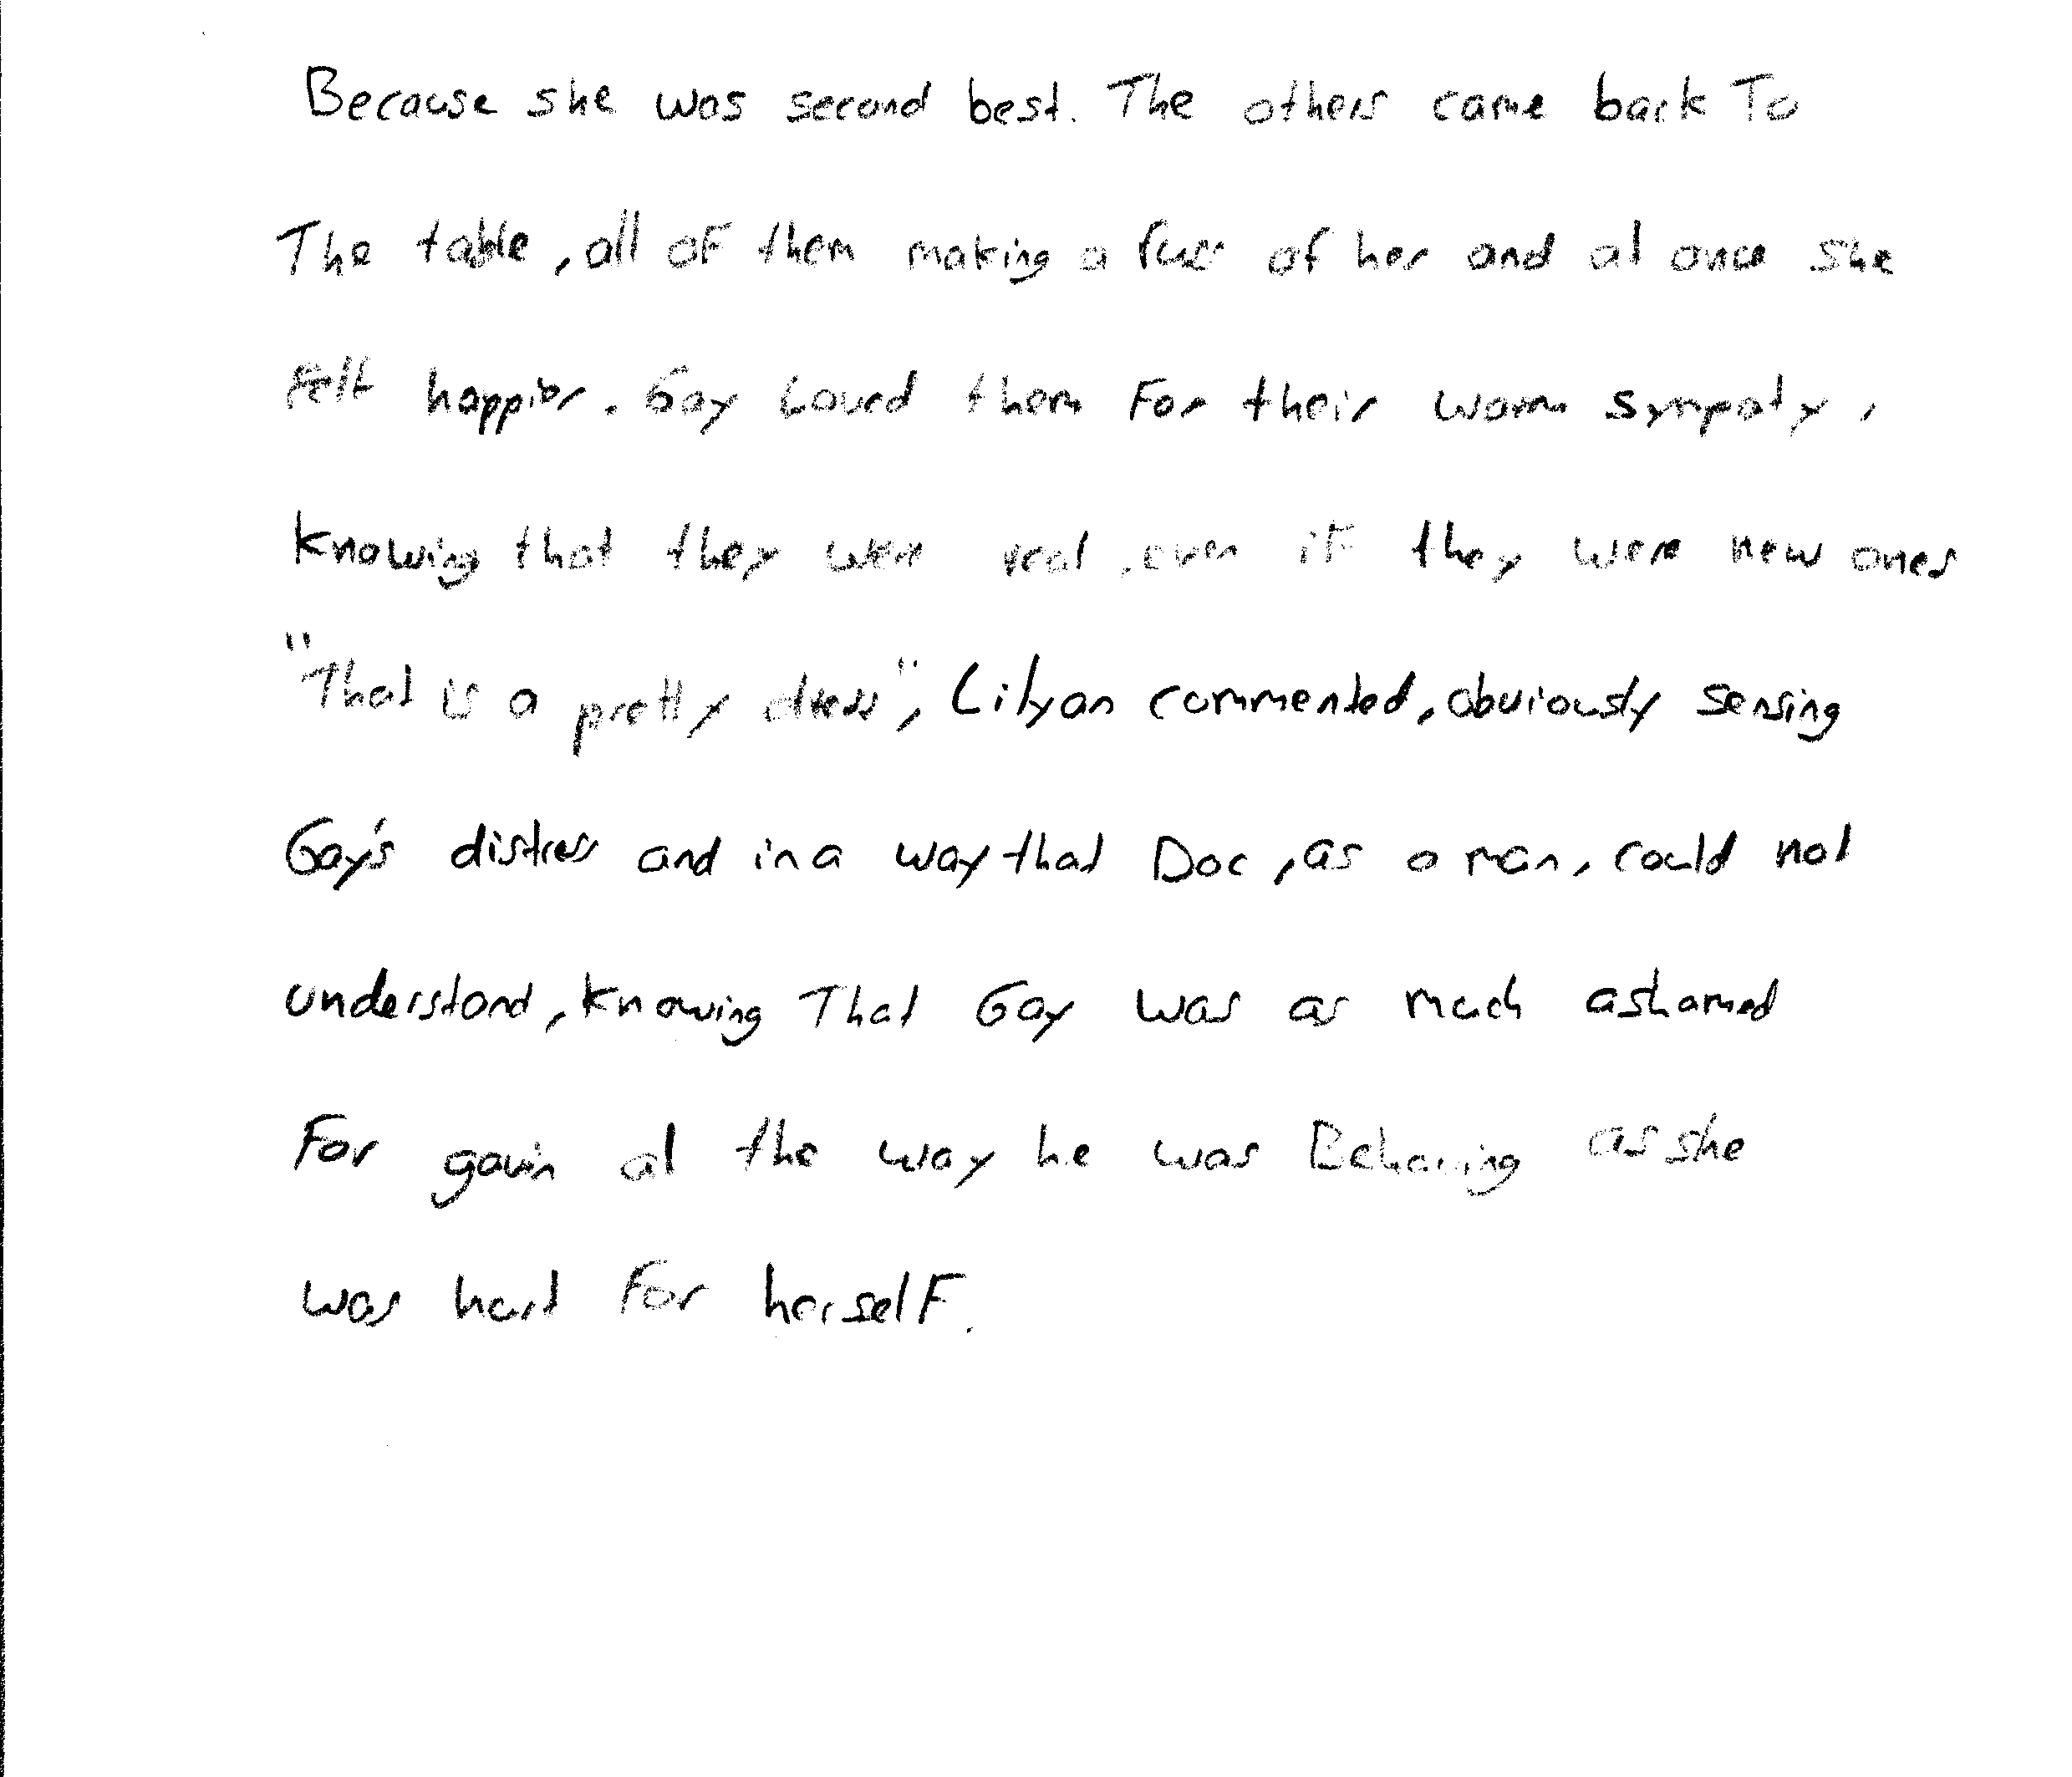 Because she was second best. The others came back To
The table, all of them making a fuss of her and at once she
felt happier. Gay Loved them For their warm sympaty,
Knowing that they were real, even if they were new ones
"That is a pretty dress", Lilyan commented, obviously sensing
Gay's distress and in a way that Doc, as a man, could not
understand, knowing That Gay was as much ashamed
For gavin at the way he was Behaving as she
was hurt For herself.